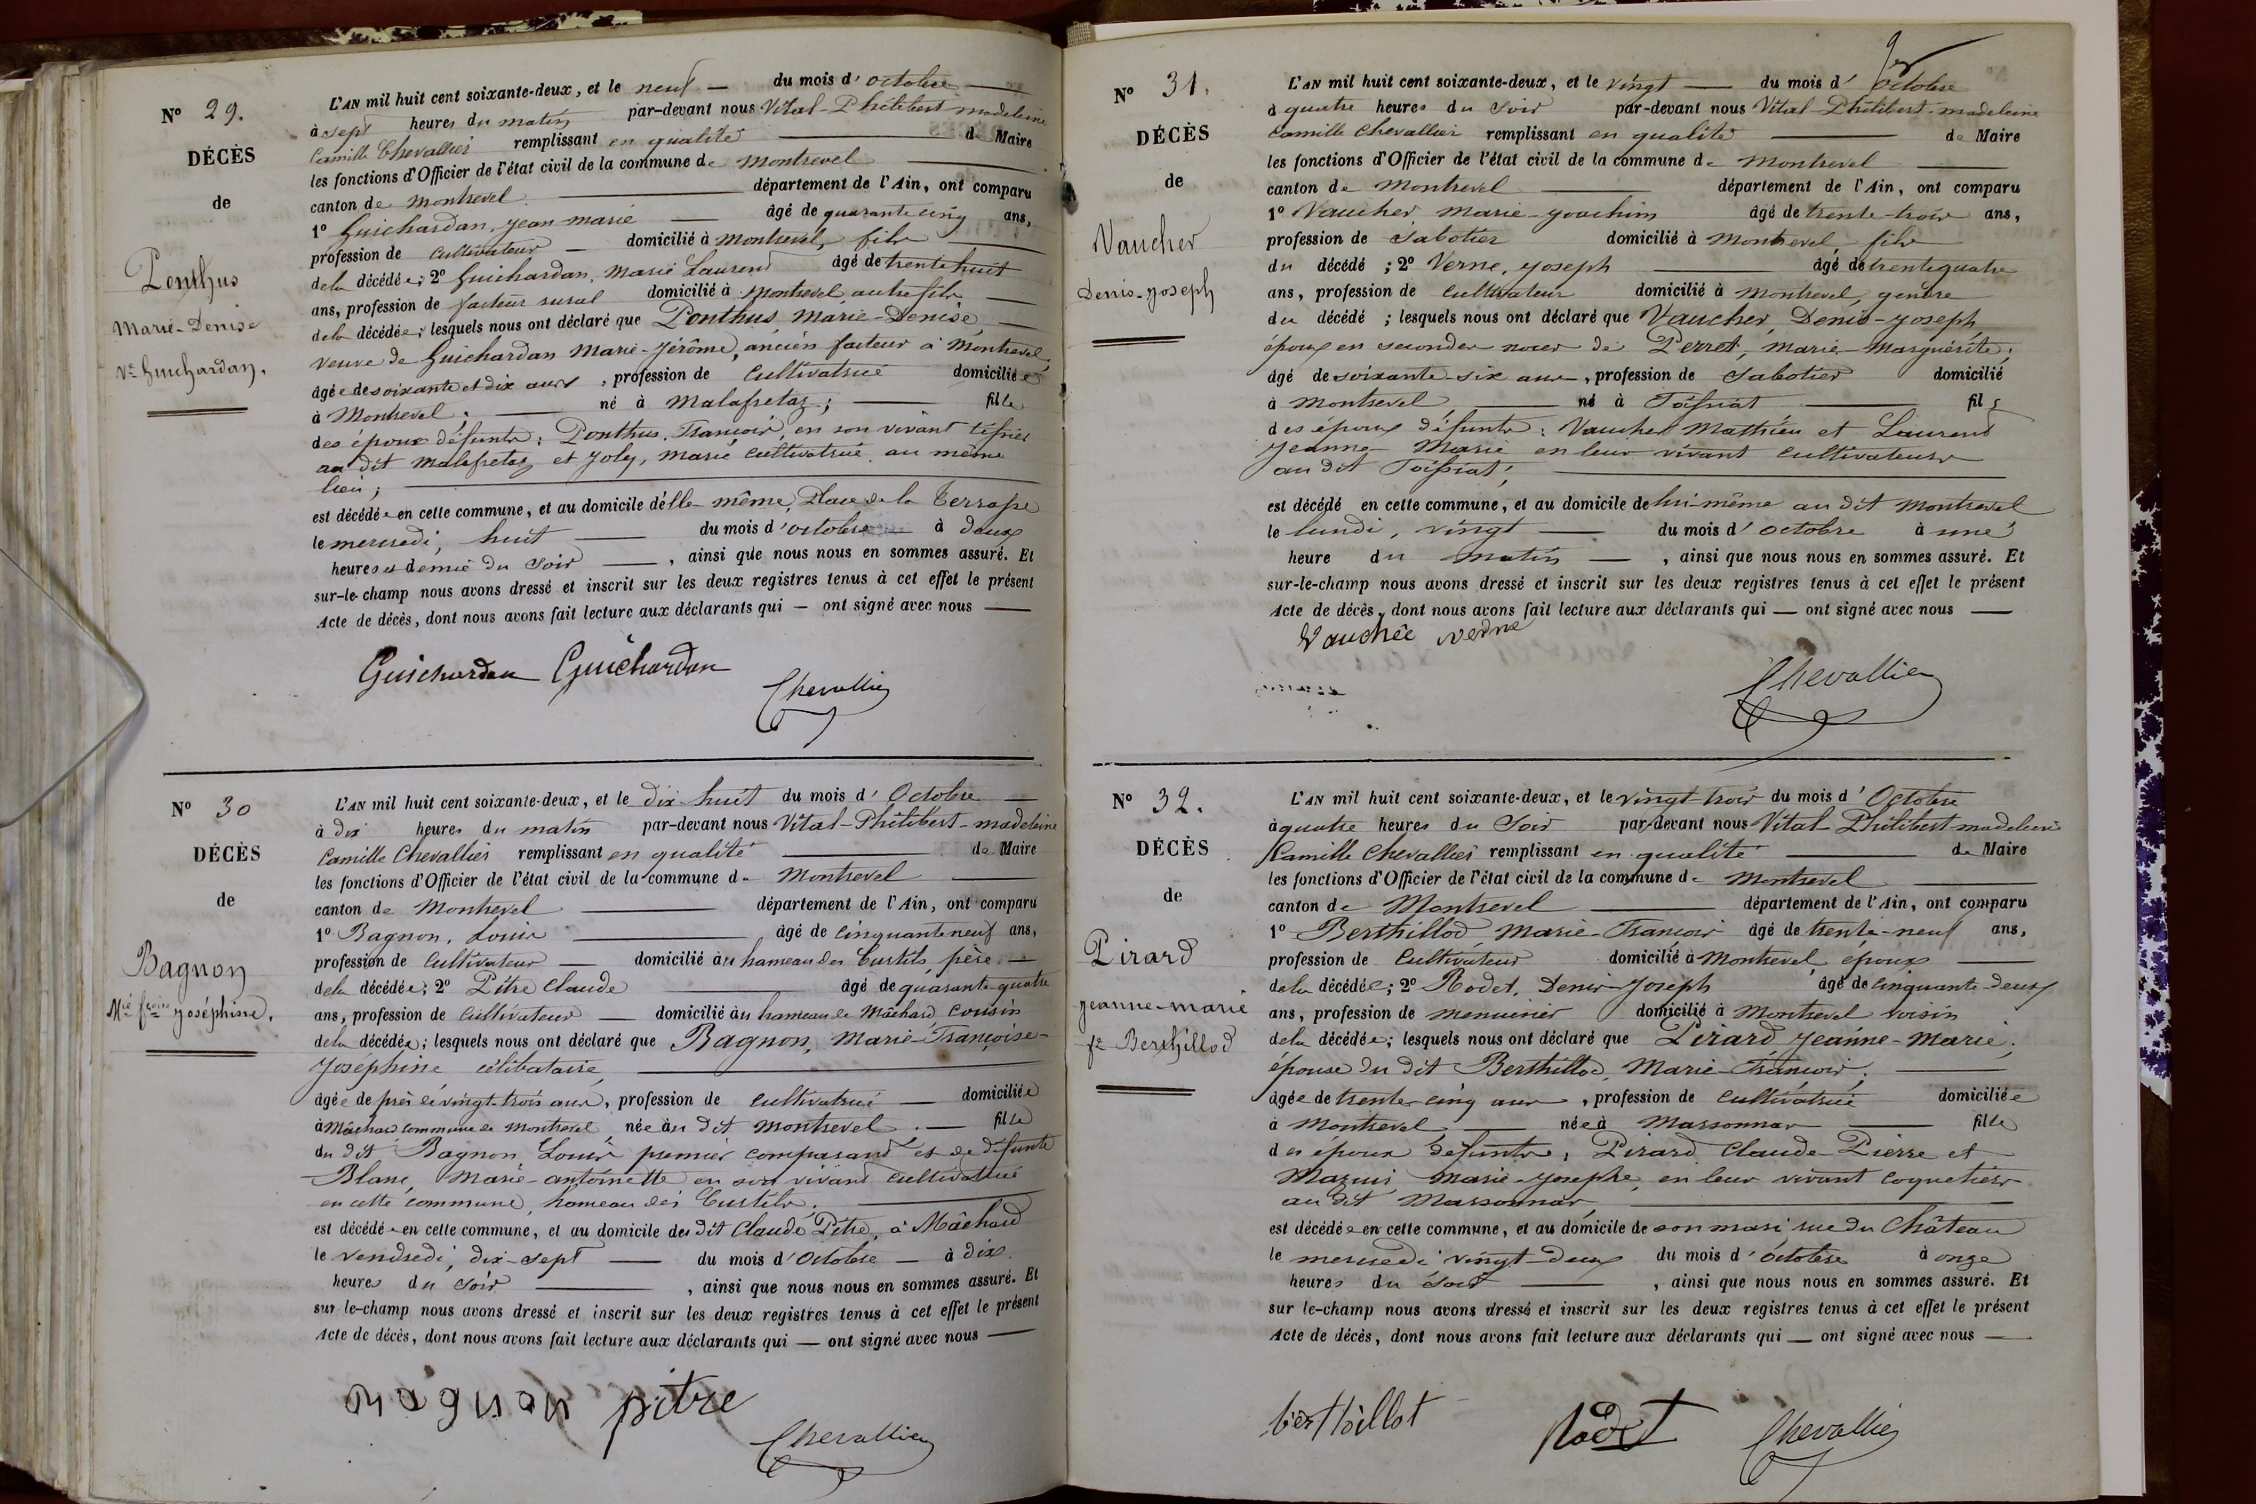 Nº 29.
DÉCÈS
de
Ponthus
Marie-Denise
Vᵉ Guichardan.
L'AN mil huit cent soixante-deux, et le neuf — du mois d'octobre —
à sept heures du matin par-devant nous Vital-Philibert madeleine
Camille Chevallier remplissant en qualité — de Maire
les fonctions d'Officier de l'état civil de la commune de Montrevel —
canton de Montrevel — département de l'Ain, ont comparu
1º Guichardan, jean marie — âgé de quarante cinq ans,
profession de cultivateur — domicilié à Montrevel, fils —
de la décédée; 2º Guichardan, Marie Laurend âgé de trente huit
ans, profession de facteur rural domicilié à Montrevel, autre fils —
de la décédée; lesquels nous ont déclaré que Ponthus, Marie-Denise, —
veuve de Guichardan Marie-Jérôme, ancien facteur à Montrevel,
âgée de soixante et dix ans, profession de cultivatrice domiciliée
à Montrevel. — né à Malafretaz; — fille
des époux défunts: Ponthus, François, en son vivant
au dit Malafretaz et Joly, Marie cultivatrice au même
lieu; —
est décédée en cette commune, et au domicile d'elle-même, Place de la Terrasse
le mercredi, huit — du mois d'octobre à deux
heures et demie du soir —, ainsi que nous nous en sommes assuré. Et
sur-le-champ nous avons dressé et inscrit sur les deux registres tenus à cet effet le présent
Acte de décès, dont nous avons fait lecture aux déclarants qui — ont signé avec nous —
Guichardan Guichardan
Chevallier
Nº 30
DÉCÈS
de
Bagnon
Mⁱᵉ fçoise joséphine.
L'AN mil huit cent soixante-deux, et le dix-huit du mois d'Octobre —
à dix heures du matin par-devant nous Vital-Philibert-madeleine
Camille Chevallier remplissant en qualité — de Maire
les fonctions d'Officier de l'état civil de la commune de Montrevel —
canton de Montrevel — département de l'Ain, ont comparu
1º Bagnon, Louis — âgé de cinquante neuf ans,
profession de cultivateur — domicilié au hameau des Curtils, père —
de la décédée; 2º Pitre Claude — âgé de quarante-quatre
ans, profession de cultivateur — domicilié au hameau de Mâchard cousin
de la décédée; lesquels nous ont déclaré que Bagnon, Marie-Françoise-
Joséphine célibataire, —
âgée de près de vingt-trois ans, profession de cultivatrice — domiciliée
à Mâchard commune de Montrevel née au dit Montrevel. — fille
du dit Bagnon Louis premier comparant et de défunte
Blanc, Marie-antoinette en son vivant cultivatrice
en cette commune, hameau des Curtils. —
est décédée en cette commune, et au domicile du dit Claude Pitre, à Mâchard
le vendredi, dix-sept — du mois d'Octobre — à dix
heures du soir —, ainsi que nous nous en sommes assuré. Et
sur-le-champ nous avons dressé et inscrit sur les deux registres tenus à cet effet le présent
Acte de décès, dont nous avons fait lecture aux déclarants qui — ont signé avec nous —
Bagnon pitre
Chevallier
9
Nº 31.
DÉCÈS
de
Vaucher
Denis-joseph
L'AN mil huit cent soixante-deux, et le vingt — du mois d'Octobre
à quatre heures du soir par-devant nous Vital Philibert-madeleine
Camille Chevallier remplissant en qualité — de Maire
les fonctions d'Officier de l'état civil de la commune de Montrevel —
canton de Montrevel — département de l'Ain, ont comparu
1º Vaucher, Marie-joachim âgé de trente-trois ans,
profession de sabotier domicilié à Montrevel, fils
du décédé; 2º Verne, joseph — âgé de trente quatre
ans, profession de cultivateur domicilié à Montrevel, gendre
du décédé; lesquels nous ont déclaré que Vaucher, Denis-joseph,
époux en secondes noces de Perret, Marie-Marguerite;
âgé de soixante-six ans, profession de sabotier domicilié
à Montrevel — né à Foissiat — fils
des époux défunts: Vaucher Matthieu et Laurend
Jeanne-Marie en leur vivant cultivateurs
au dit Foissiat; —
est décédé en cette commune, et au domicile de lui-même au dit Montrevel
le lundi, vingt — du mois d'octobre à une
heure du matin —, ainsi que nous nous en sommes assuré. Et
sur-le-champ nous avons dressé et inscrit sur les deux registres tenus à cet effet le présent
Acte de décès, dont nous avons fait lecture aux déclarants qui — ont signé avec nous —
Vauchée verne
Chevallier
Nº 32.
DÉCÈS
de
Pirard
jeanne-marie
fᵉ Berthillod
L'AN mil huit cent soixante-deux, et le vingt-trois du mois d'Octobre
à quatre heures du soir par-devant nous Vital Philibert madeleine
Camille Chevallier remplissant en qualité — de Maire
les fonctions d'Officier de l'état civil de la commune de Montrevel —
canton de Montrevel — département de l'Ain, ont comparu
1º Berthillod, Marie-François âgé de trente-neuf ans,
profession de cultivateur domicilié à Montrevel, époux —
de la décédée; 2º Rodet, Denis-Joseph âgé de cinquante-deux
ans, profession de menuisier domicilié à Montrevel voisin
de la décédée; lesquels nous ont déclaré que Pirard Jeanne-Marie,
épouse du dit Berthillod, Marie-François, —
âgée de trente-cinq ans, profession de cultivatrice domiciliée
à Montrevel — née à Marsonnas — fille
des époux défunts, Pirard Claude-Pierre et
Mazuis, Marie-josephe, en leur vivant coquetiers
au dit Marsonnas, —
est décédée en cette commune, et au domicile de son mari, rue du Château
le mercredi vingt-deux du mois d'octobre à onze
heures du soir —, ainsi que nous nous en sommes assuré. Et
sur le-champ nous avons dressé et inscrit sur les deux registres tenus à cet effet le présent
Acte de décès, dont nous avons fait lecture aux déclarants qui — ont signé avec nous —
berthillot Rodet Chevallier